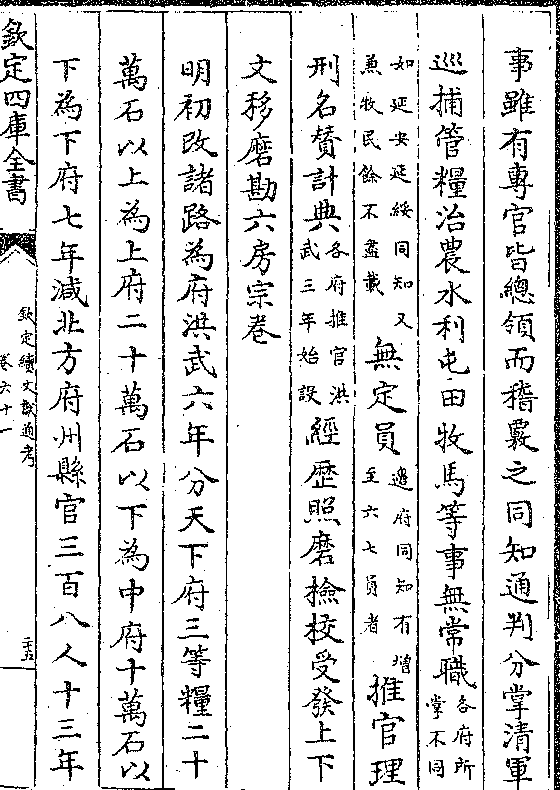 事雖有專官皆總領而稽覈之同知通判分掌清軍
巡捕管糧治農水利屯田牧馬等事無常職各府所掌不同
如延安延綏同知又兼牧民餘不盡載無定員邊府同知有增至六七員者推官理
刑名贊計典各府推官洪武三年始設經歷照磨檢校受發上下
文移磨勘六房宗卷
明初改諸路為府洪武六年分天下府三等糧二十
萬石以上為上府二十萬石以下為中府十萬石以
下為下府七年減北方府州縣官三百八人十三年
欽定四庫全書
欽定續文獻通考
卷六十一
二十五